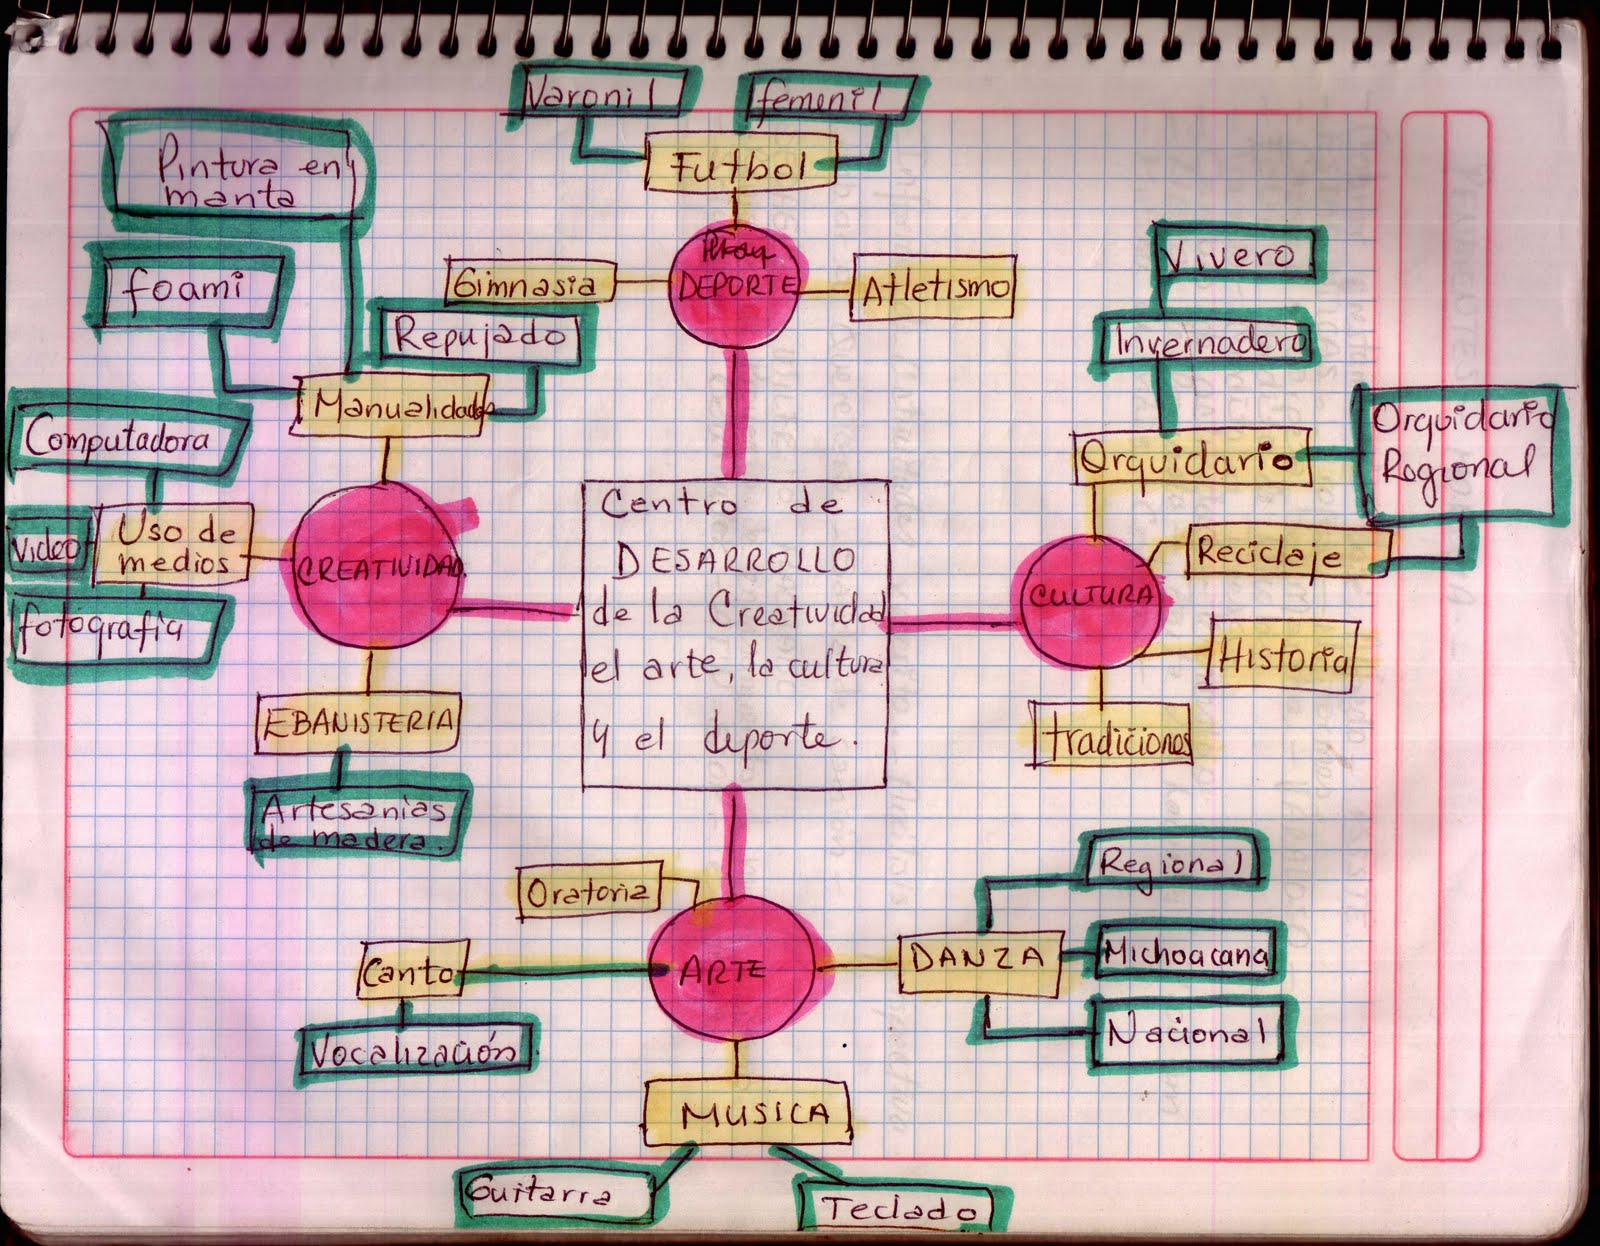 Varonil
femenil
Futbol
Pintura en
manta
foami
Gimnasia
DEPORTE
Atletismo
Repujado
Manualidades
Vivero
Invernadero
Orquidario
Orquidario
Regional
Computadora
Video
Uso de
medios
fotografia
CREATIVIDAD
EBANISTERIA
Artesanias
de madera.
Centro de
DESARROLLO
de la Creatividad
el arte, la cultura
y el deporte.
CULTURA
Reciclaje
Historia
tradiciones
Oratoria
Canto
Vocalización
ARTE
DANZA
Regional
Michoacana
Nacional
MUSICA
Guitarra
Teclado